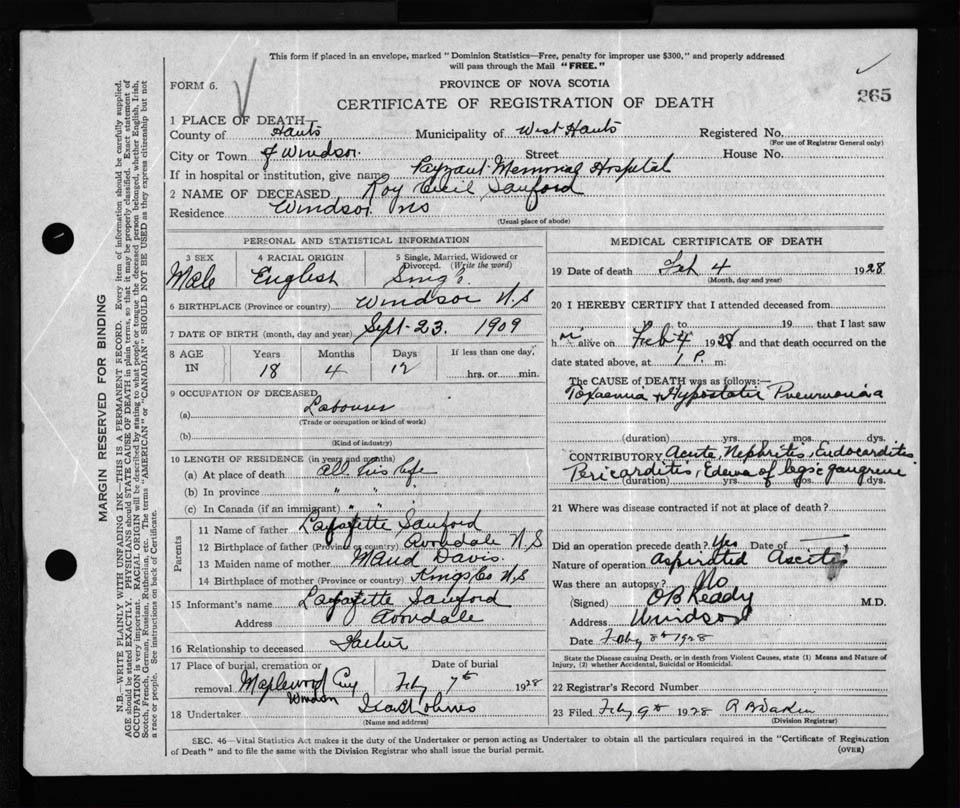 This form if placed in an envelope, marked "Dominion Statistics—Free, penalty for improper use $300," and properly addressed
will pass through the Mail "FREE."
FORM 6.
PROVINCE OF NOVA SCOTIA
CERTIFICATE OF REGISTRATION OF DEATH
265
1 PLACE OF DEATH—
County of Hants Municipality of West Hants Registered No.
(For use of Registrar General only)
City or Town of Windsor. Street House No.
If in hospital or institution, give name Payzant Memorial Hospital
2 NAME OF DECEASED Roy Cecil Sanford
Residence Windsor NS
(Usual place of abode)
PERSONAL AND STATISTICAL INFORMATION
3 SEX 4 RACIAL ORIGIN 5 Single, Married, Widowed or
Divorced. (Write the word)
Male English Single
6 BIRTHPLACE (Province or country) Windsor N.S
7 DATE OF BIRTH (month, day and year) Sept. 23. 1909
8 AGE IN Years Months Days If less than one day,
18 4 12 hrs. or min.
9 OCCUPATION OF DECEASED
(a) Labourer
(Trade or occupation or kind of work)
(b)
(Kind of industry)
10 LENGTH OF RESIDENCE (in years and months)
(a) At place of death all his life
(b) In province " "
(c) In Canada (if an immigrant) " "
Parents
11 Name of father Lafayette Sanford
12 Birthplace of father (Province or country) Avondale N.S
13 Maiden name of mother Maud Davis.
14 Birthplace of mother (Province or country) Kings Co N.S
15 Informant's name Lafayette Sanford
Address Avondale
16 Relationship to deceased Father
17 Place of burial, cremation or Date of burial
removal Maplewood Cry Feb 7th 1928
Windsor
18 Undertaker
(Name and address)
MEDICAL CERTIFICATE OF DEATH
19 Date of death Feb 4 1928
(Month, day and year)
20 I HEREBY CERTIFY that I attended deceased from
to 19 that I last saw
h im alive on Feb 4 1928 and that death occurred on the
date stated above, at 1 P. m.
The CAUSE of DEATH was as follows:—
Toxaemia & Hypostatic Pneumonia
(duration) yrs. mos. dys.
CONTRIBUTORY Acute, Nephritis, Endocarditis
Pericarditis, Edema of legs c gangrene
(duration) yrs. mos. dys.
21 Where was disease contracted if not at place of death?
Did an operation precede death? Yes Date of
Nature of operation Aspirated Ascites
Was there an autopsy? No
(Signed) O B Keddy M.D.
Address Windsor
Date Feby 8th 1928
State the Disease causing Death, or in death from Violent Causes, state (1) Means and Nature of
Injury, (2) whether Accidental, Suicidal or Homicidal.
22 Registrar's Record Number
23 Filed Feby 9th 1928 R B Dakin
(Division Registrar)
SEC. 46—Vital Statistics Act makes it the duty of the Undertaker or person acting as Undertaker to obtain all the particulars required in the "Certificate of Registration
of Death" and to file the same with the Division Registrar who shall issue the burial permit.
(OVER)
MARGIN RESERVED FOR BINDING
N.B.—WRITE PLAINLY WITH UNFADING INK—THIS IS A PERMANENT RECORD. Every item of information should be carefully supplied.
AGE should be stated EXACTLY. PHYSICIANS should STATE CAUSE OF DEATH in plain terms, so that it may be properly classified. Exact statement of
OCCUPATION is very important. RACIAL ORIGIN will be described by stating to what people or tongue the deceased person belonged, whether English, Irish,
Scotch, French, German, Russian, Ruthenian, etc. The terms "AMERICAN" or "CANADIAN" SHOULD NOT BE USED as they express citizenship but not
a race or people. See instructions on back of Certificate.